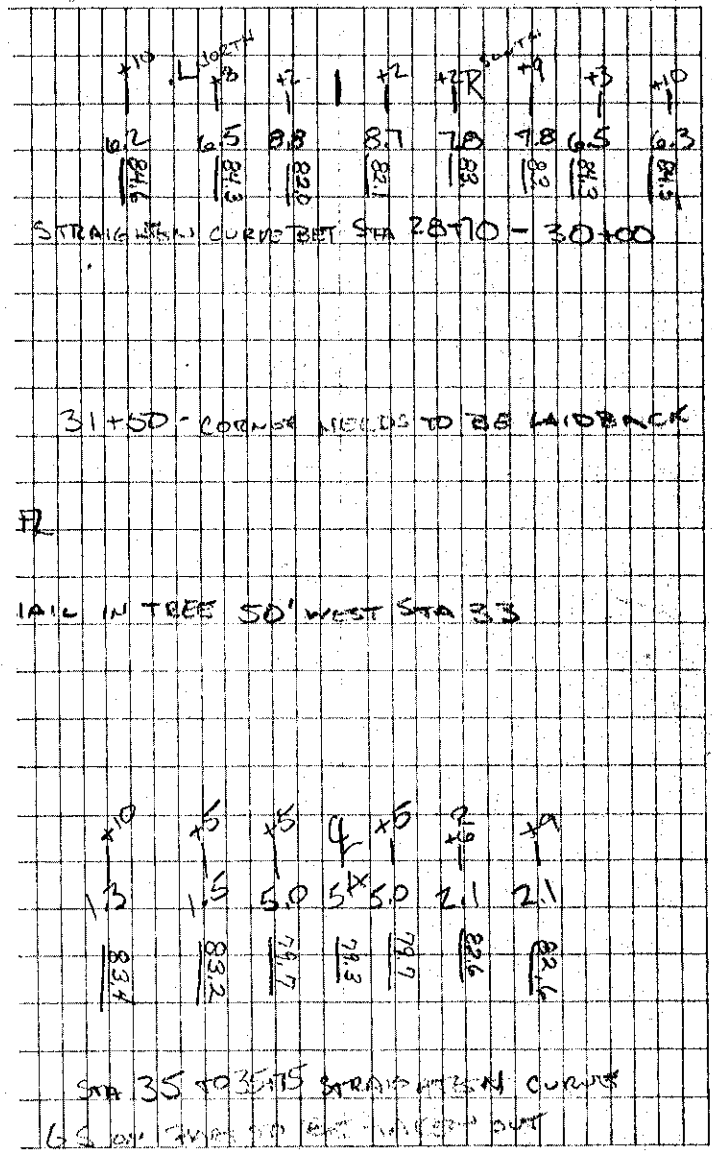 L NORTH R SOUTH
+10 +8 +2 +2 +2 +9 +3 +10
6.2 6.5 8.8 8.7 7.8 7.8 6.5 6.3
84.6 84.3 82.0 82.1 83. 84.3 84.5
STRAIGHTEN CURVE BET STA 28+70 - 30+00
31+50 - CORNER NEEDS TO BE LAID BACK
FL
IAIL IN TREE 50' WEST STA 33
+10 +5 +5 ℄ +5 +9 +9
1.3 1.5 5.0 5.0 2.1 2.1
83.4 83.2 79.7 79.3 79.7 82.6 82.6
STA 35 TO 35+75 STRAIGHTEN CURVE
TO BE OUT